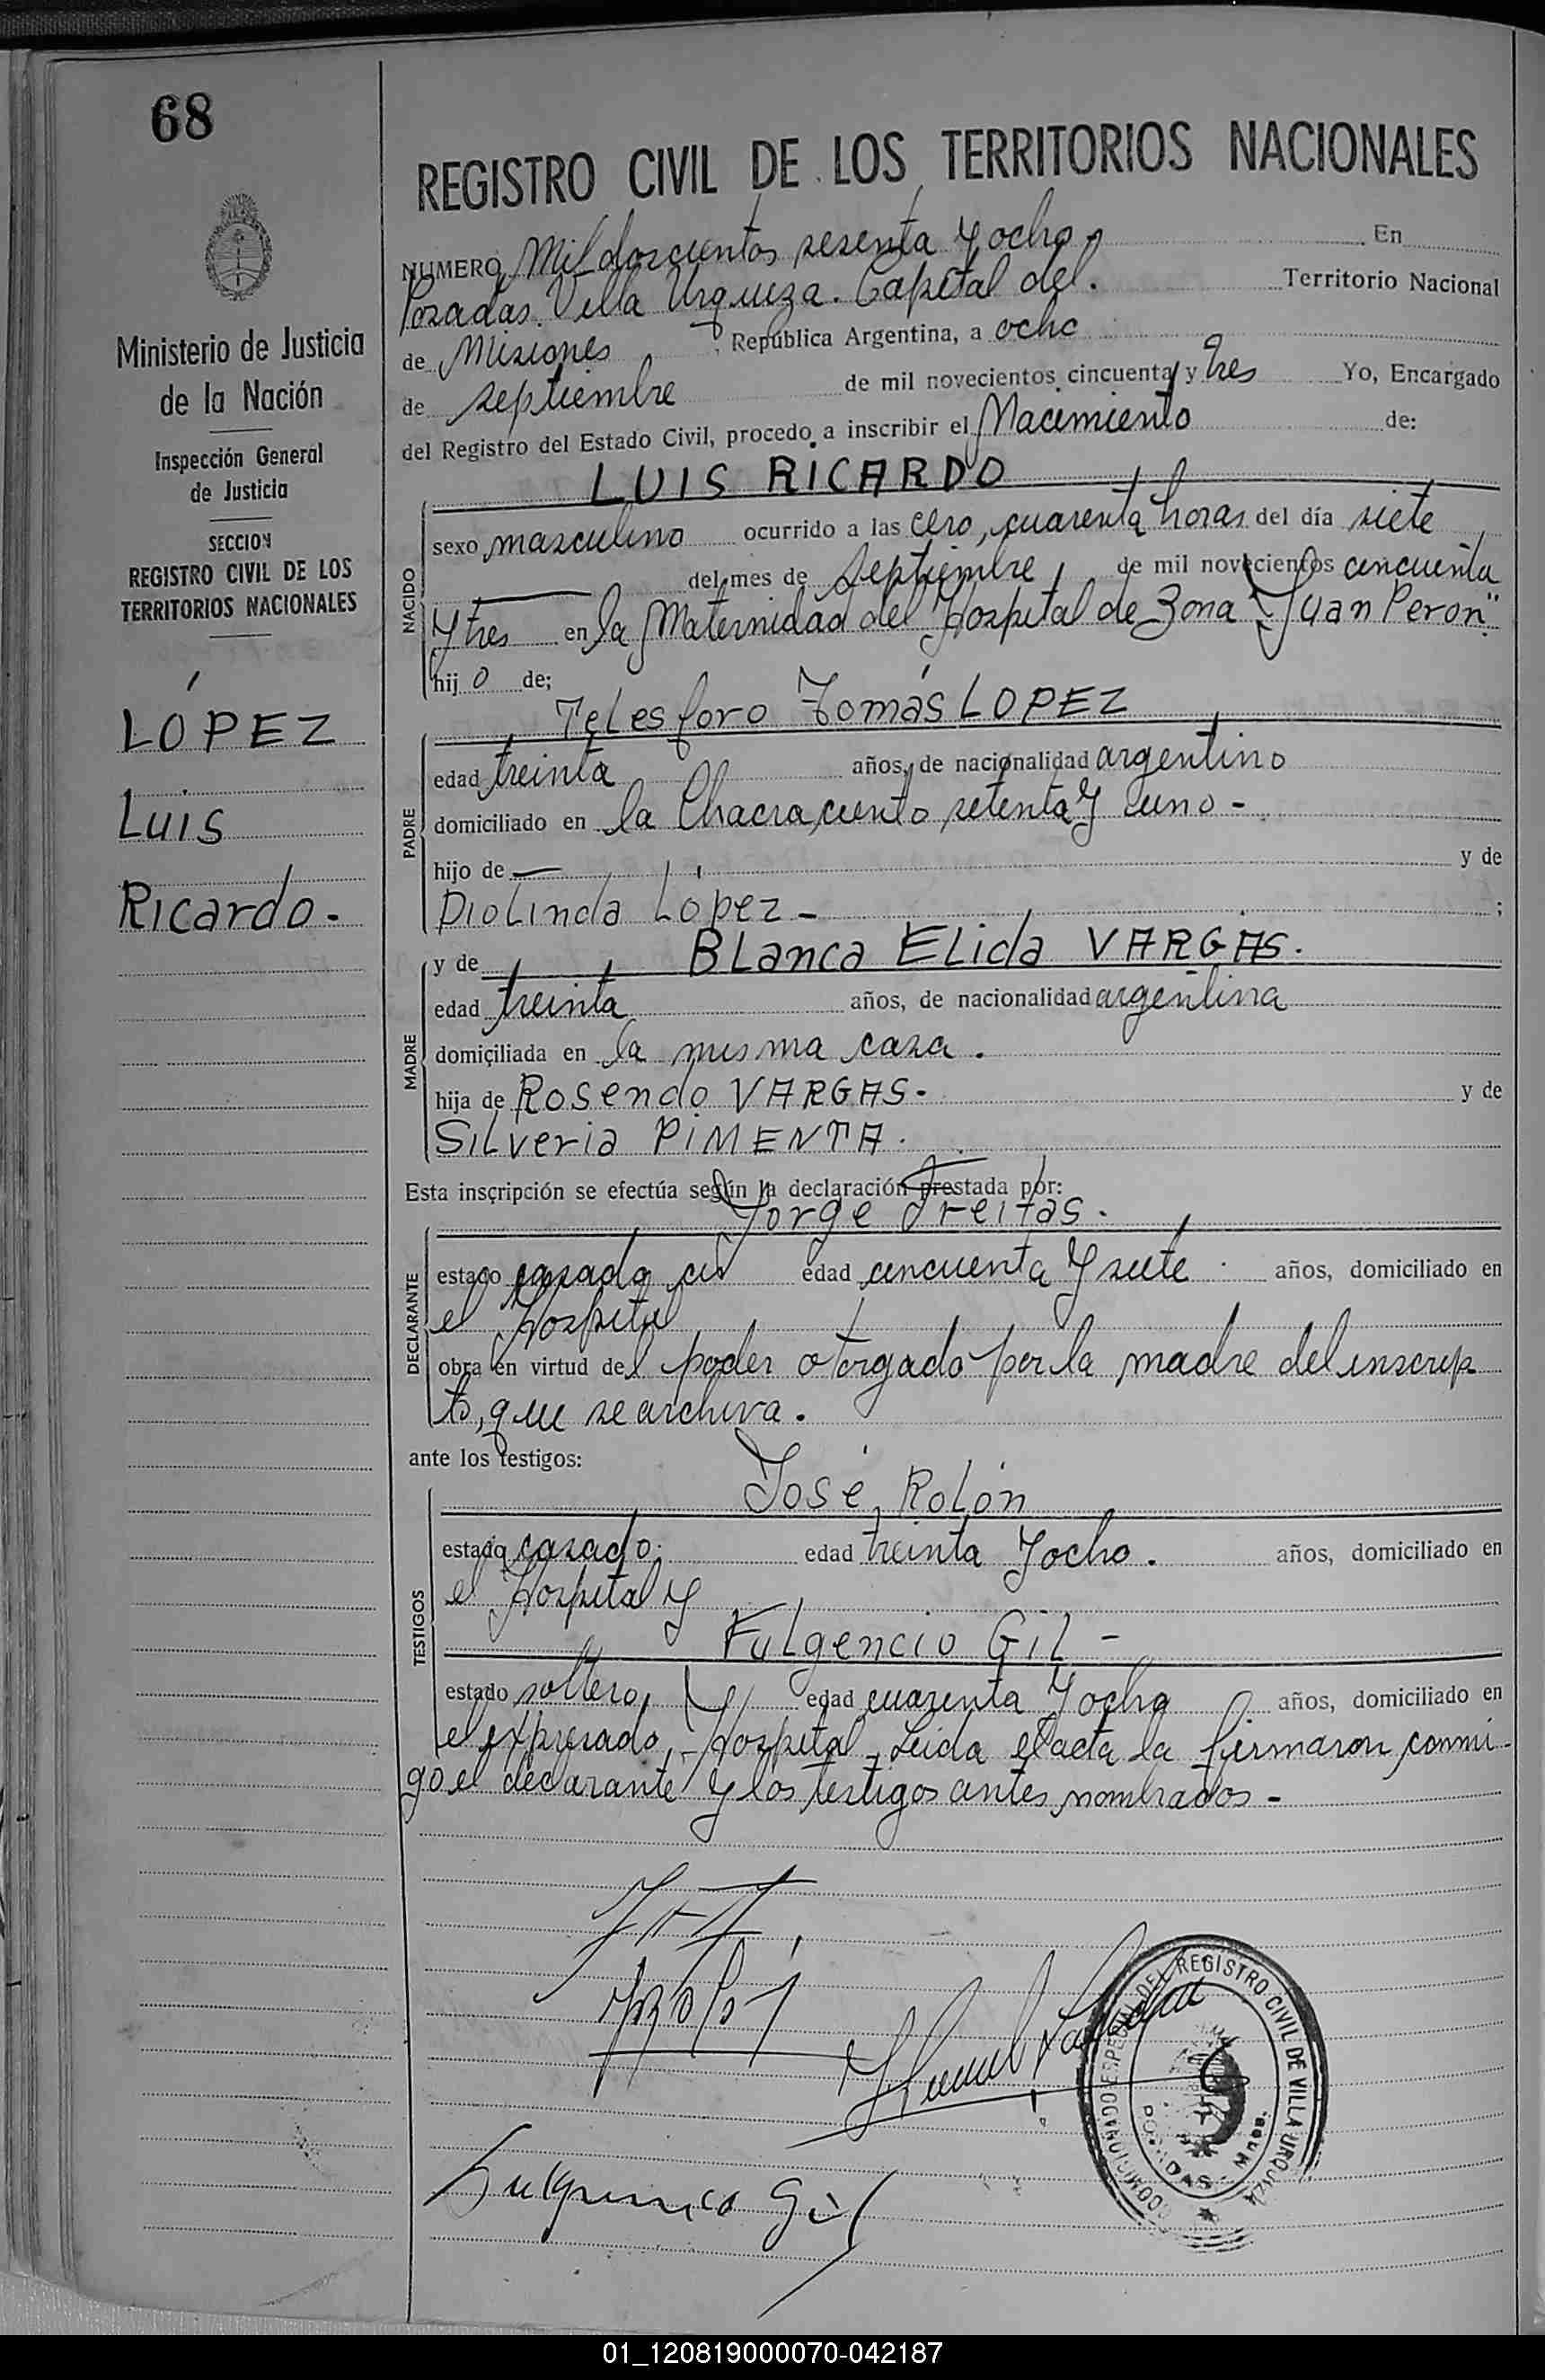 68
Ministerio de Justicia
de la Nación
Inspección General
de Justicia
SECCION
REGISTRO CIVIL DE LOS
TERRITORIOS NACIONALES
LÓPEZ
Luis
Ricardo.-
REGISTRO CIVIL DE LOS TERRITORIOS NACIONALES
NUMERO Mil doscientos sesenta y ocho.- En
Posadas. Villa Urquiza. Capital del. Territorio Nacional
de Misiones, República Argentina, a ocho
de septiembre de mil novecientos cincuenta y tres Yo, Encargado
del Registro del Estado Civil, procedo a inscribir el Nacimiento de:
LUIS RICARDO
NACIDO
sexo masculino ocurrido a las cero, cuarenta horas del día siete
del mes de septiembre, de mil novecientos cincuenta
y tres en la Maternidad del Hospital de Zona "Juan Perón".
hij o de;
Telesforo Tomás LOPEZ
PADRE
edad treinta años, de nacionalidad argentino
domiciliado en la Chacra ciento setenta y uno -
hijo de — y de
Diolinda López - ;
y de Blanca Elida VARGAS.
MADRE
edad treinta años, de nacionalidad argentina
domiciliada en la misma casa.
hija de Rosendo VARGAS.- y de
Silveria PIMENTA.
Esta inscripción se efectúa según la declaración prestada por:
Jorge Freitas.
DECLARANTE
estado casado edad cincuenta y siete años, domiciliado en
el Hospital
obra en virtud del poder otorgado por la madre del inscrip
to, que se archiva.
ante los testigos:
José Rolón
TESTIGOS
estado casado. edad treinta y ocho. años, domiciliado en
el Hospital y
Fulgencio Gil -
estado soltero, edad cuarenta y ocho años, domiciliado en
el expresado Hospital. Leida el acta la firmaron conmi-
go el declarante y los testigos antes nombrados -
Fulgencio Gil
DEL REGISTRO CIVIL DE VILLA URQUIZA
POSADAS - Mnes.
01_120819000070-042187